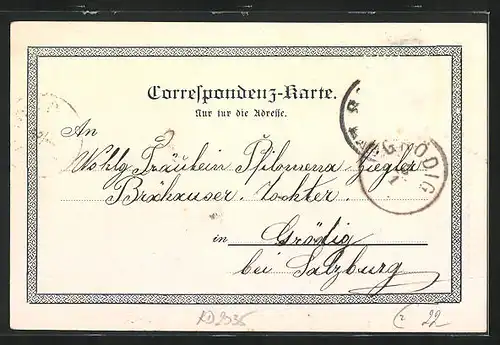 Correspondenz-Karte.
Nur für die Adresse.
An
Wohlg. Fräulein Philomena Ziegler
Bräuhauser. Tochter.
in Grödig
bei Salzburg
GRÖDIG
KD2935
22